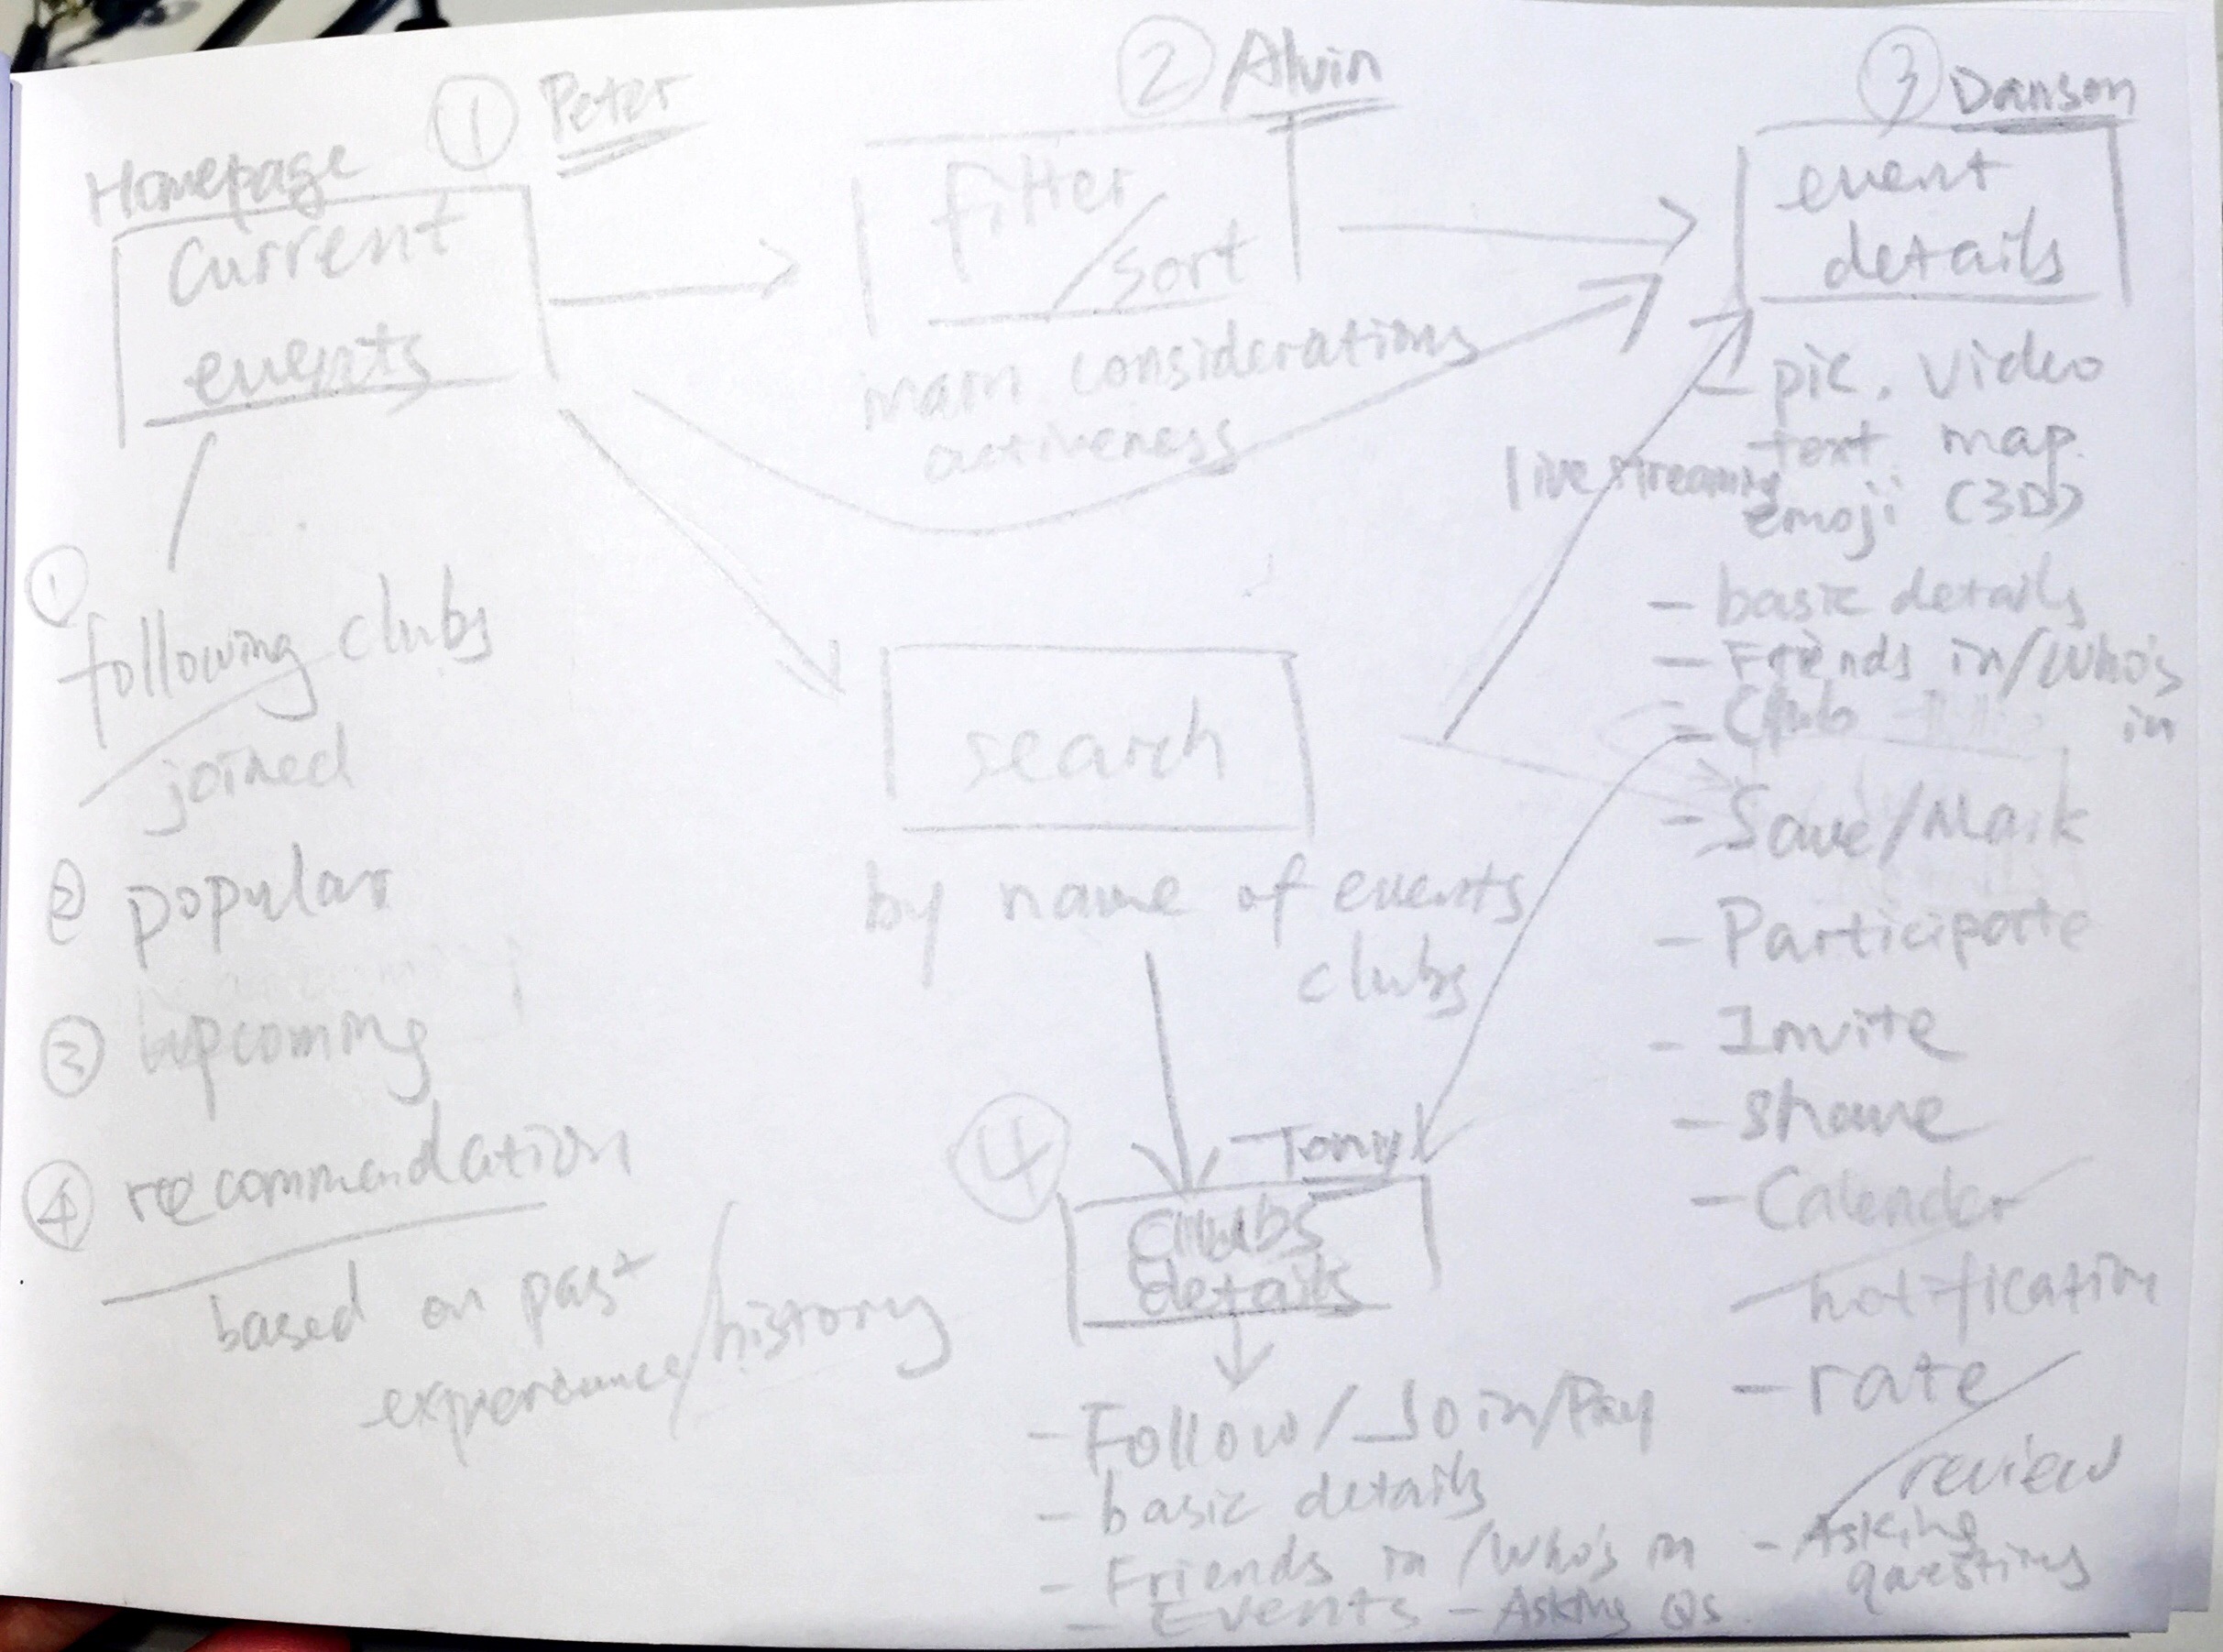 ① Peter
Homepage
Current
events
①
following clubs
/ joined
② popular
③ upcoming
④ recommendation
based on past
experience/history
② Alvin
filter
/ sort
main considerations
activeness
search
by name of events
clubs
④ Tony
Clubs
details
- Follow/Join/Pay
- basic details
- Friends in/Who's in
- Events - Asking Qs
③ Danson
event
details
- pic. video
text map
live streaming
emoji (3D)
- basic details
- Friends in/Who's
in
- Club
- Save/Mark
- Participate
- Invite
- share
- Calender
/ notification
- rate
/ review
- Asking
questions